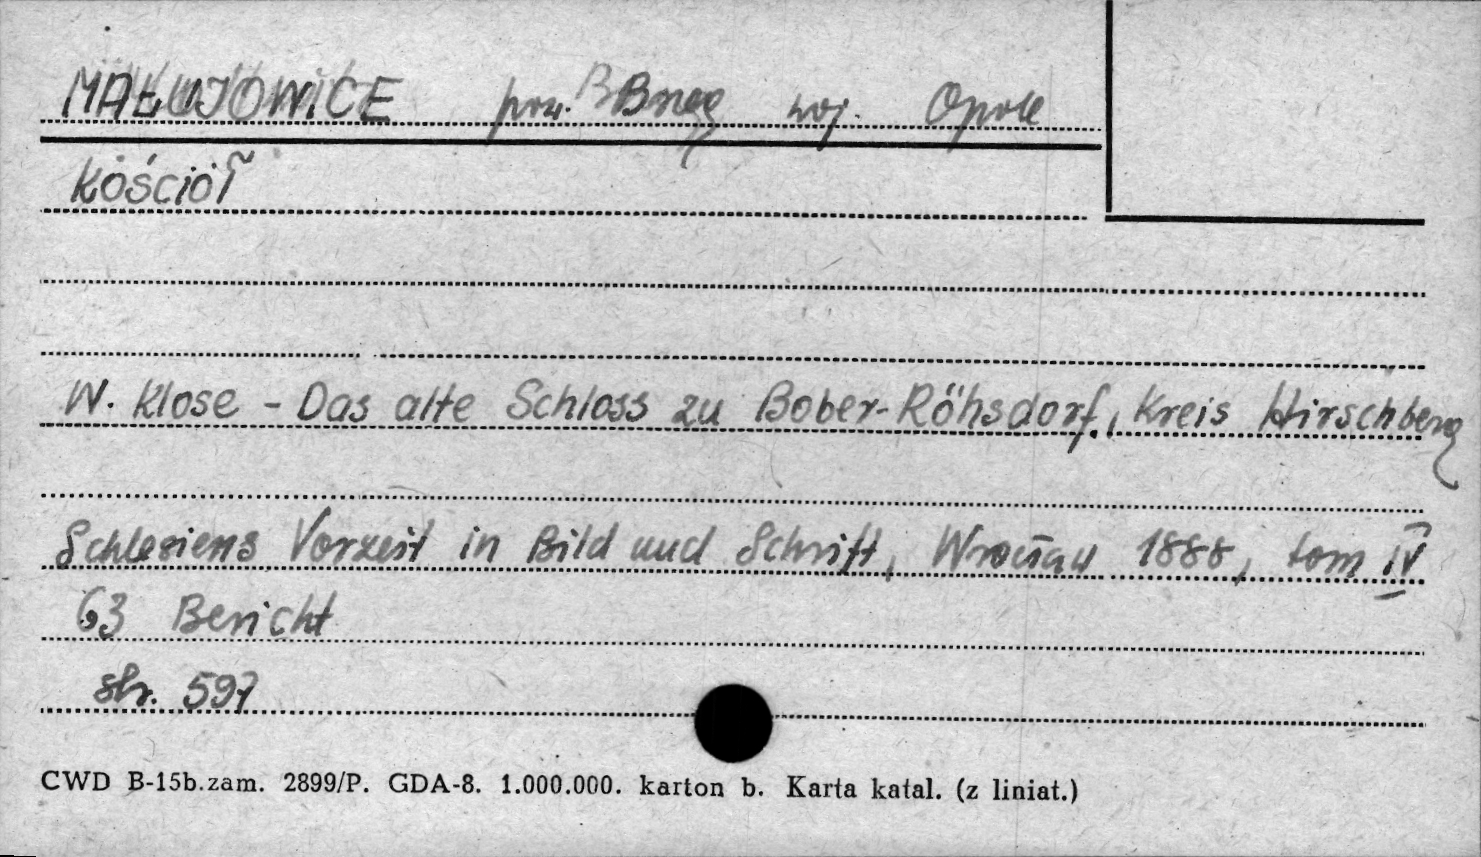 MAŁUJOWICE pow. Brzeg woj. Opole
Kościół
W. Klose - Das alte Schloss zu Bober-Röhsdorf, Kreis Hirschberg
Schlesiens Vorzeit in Bild und Schrift, Wrocław 1888, tom IV
63 Bericht
str. 597
CWD B-15b.zam. 2899/P. GDA-8. 1.000.000. karton b. Karta katal. (z liniat.)